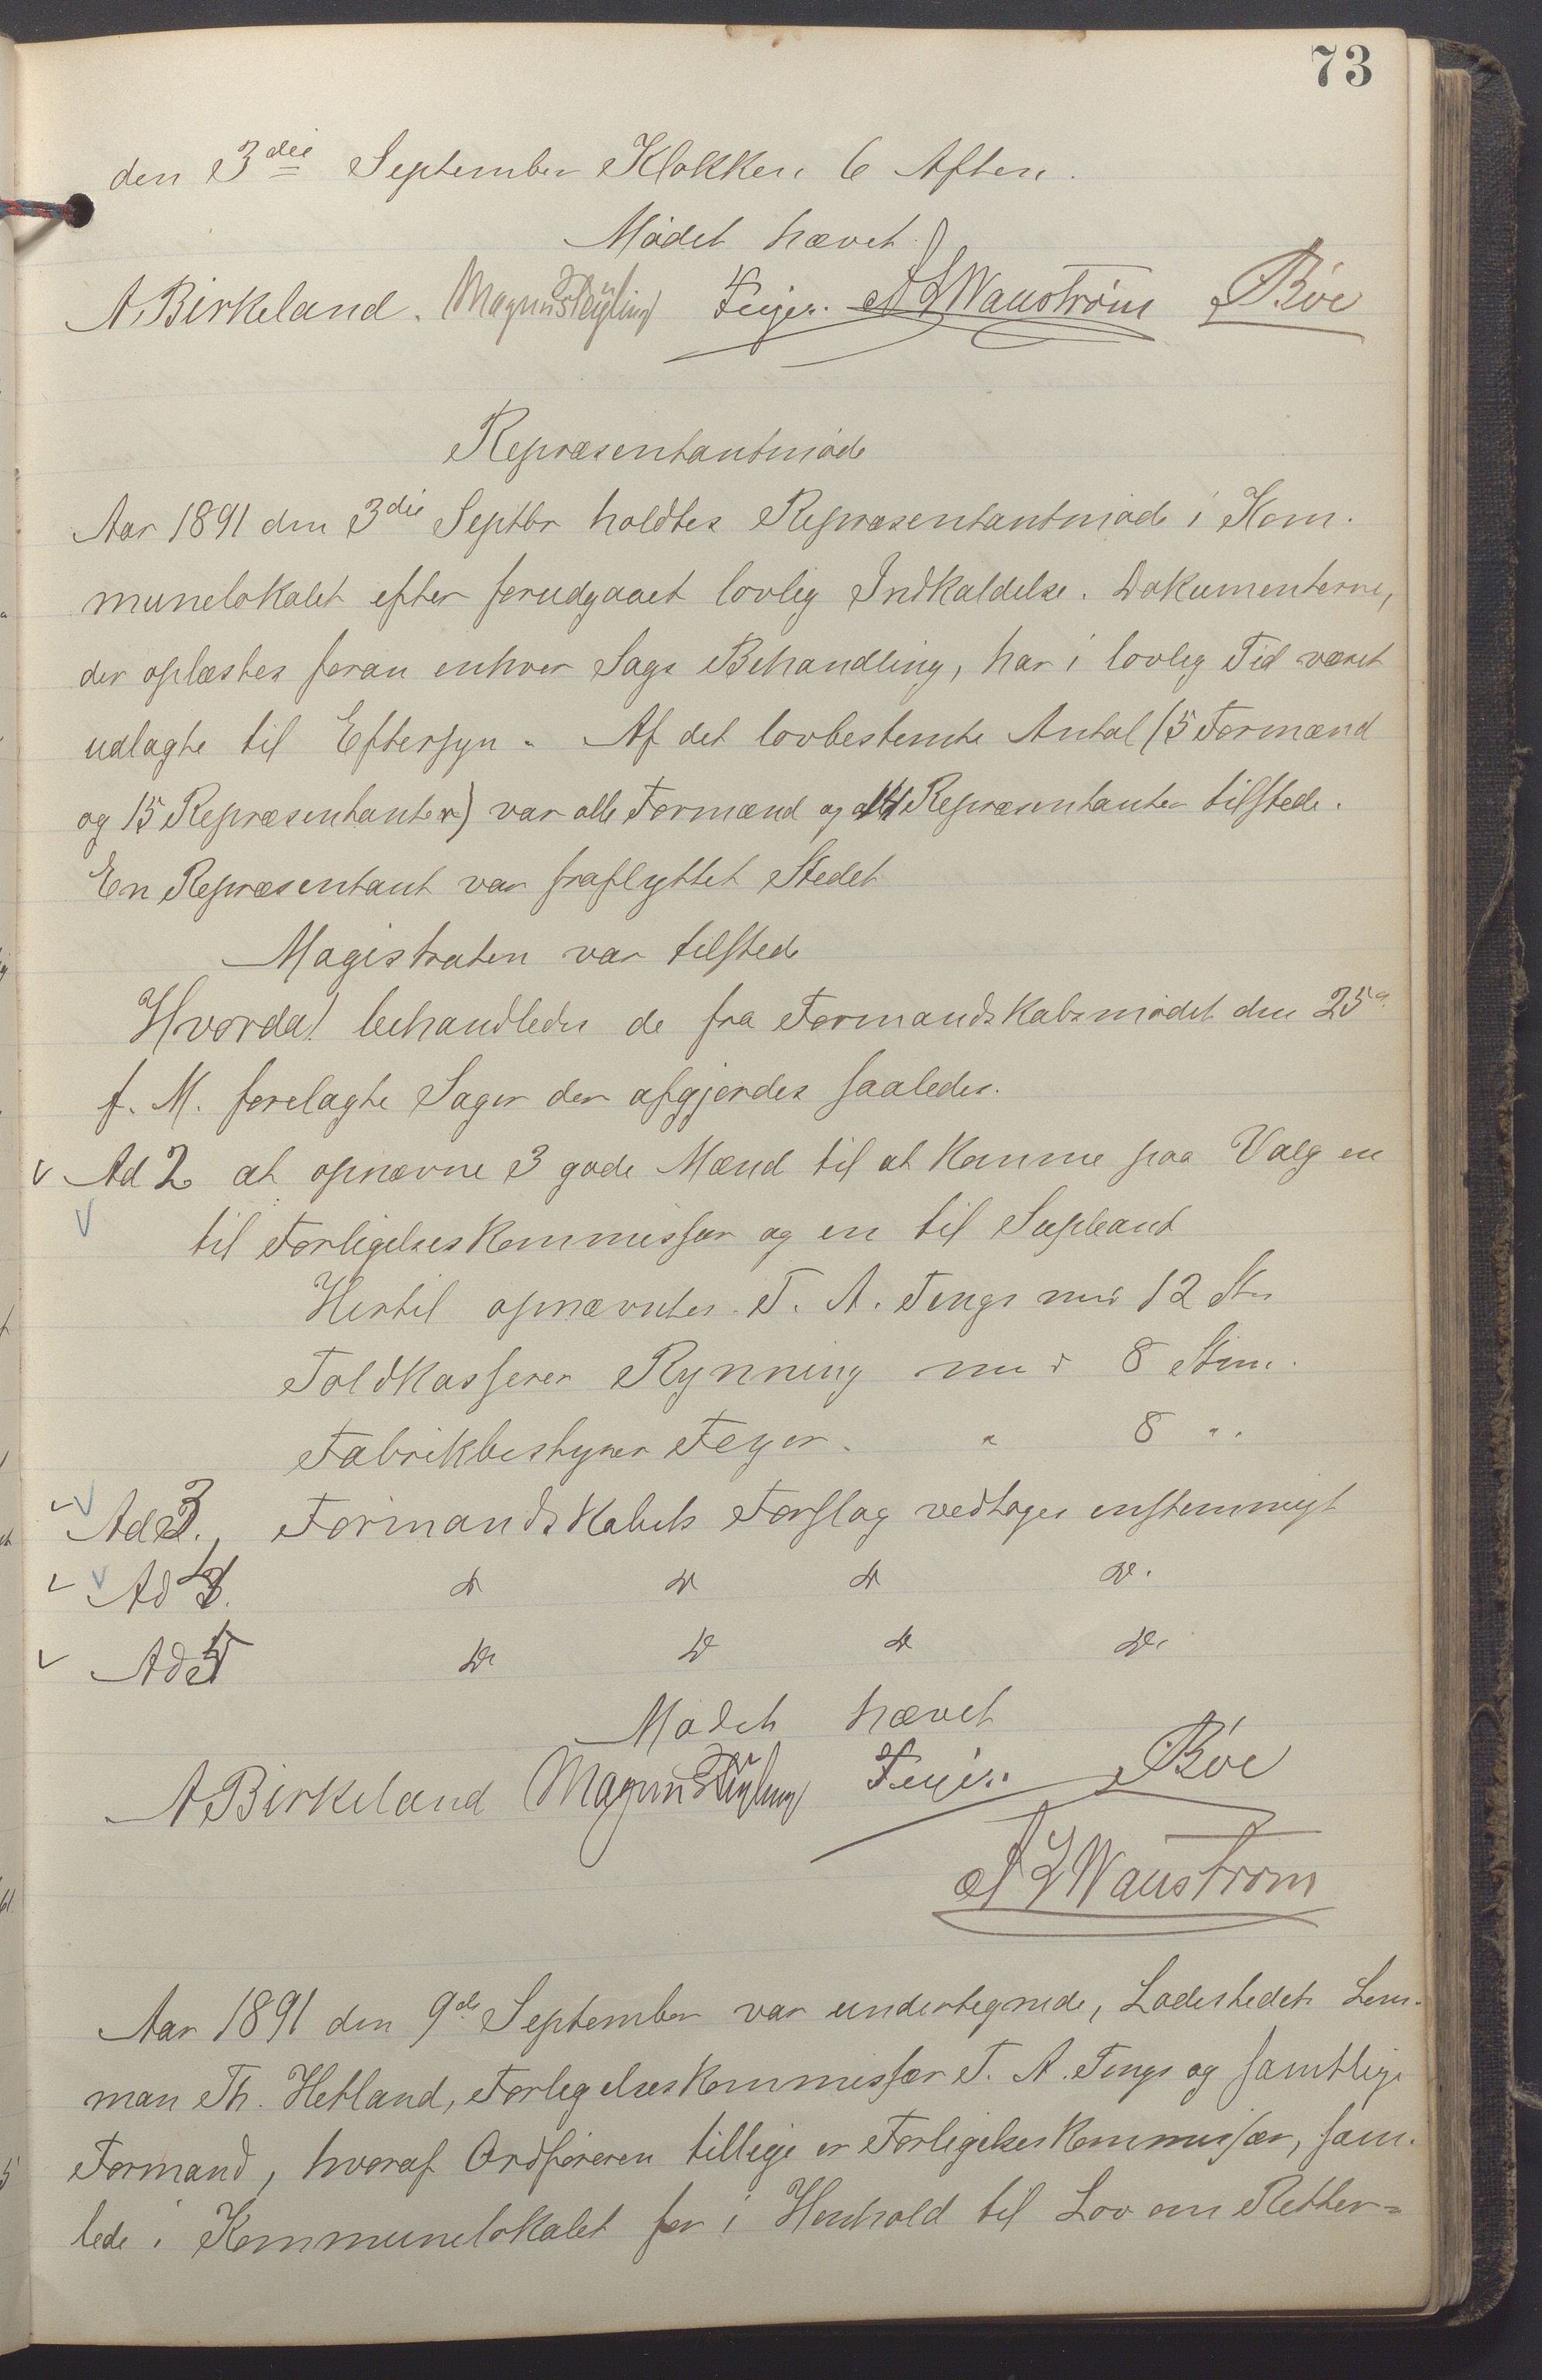 73
den 3die September Klokken 6 Aften.
Mödet hævet.
A. Birkeland. Magnus Feyer. A L Wanström Böe
Repræsentantmöde
Aar 1891 den 3die Septbr holdtes Repræsentantmöde i Kom.
munelokalet efter forudgaaet lovlig Indkaldelse. Dokumenterne,
der oplæstes foran enhver Sags Behandling, har i lovlig Tid været
udlagte til Eftersyn. Af det lovbestemte Antal (5 Formænd
og 15 Repræsentanter) var alle Formænd og 14 Repræsentanter tilstede.
En Repræsentant var fraflyttet Stedet
Magistraten var tilstede
Hvorda! behandledes de fra Formandskabsmödet den 25de
f. M. forelagte Sager der afgjordes saaledes.
Ad 2 at opnævne 3 gode Mænd til at komme paa Valg en
til Forligelseskommissær og en til Supleant
Hertil opnævntes T. A. Tengs med 12 St.
Toldkasserer Rynning med 8 Stm.
Fabrikbestyrer Feyer. " 8 ".
Ad 3. Formandskabets Forslag vedtages enstemmigt
Ad 4. Do Do Do Do.
Ad 5 Do Do Do Do
Mödet hævet
A Birkeland Magnus Feyer. Böe
A L Wanström
Aar 1891 den 9de September var undertegnede, Ladestedets Lens.
man Th. Hetland, Forligelseskommissær T. A. Tengs og samtlige
Formænd, hvoraf Ordföreren tillige er Forligelseskommissær, sam.
lede i Kommunelokalet for i Henhold til Lov om Retter=